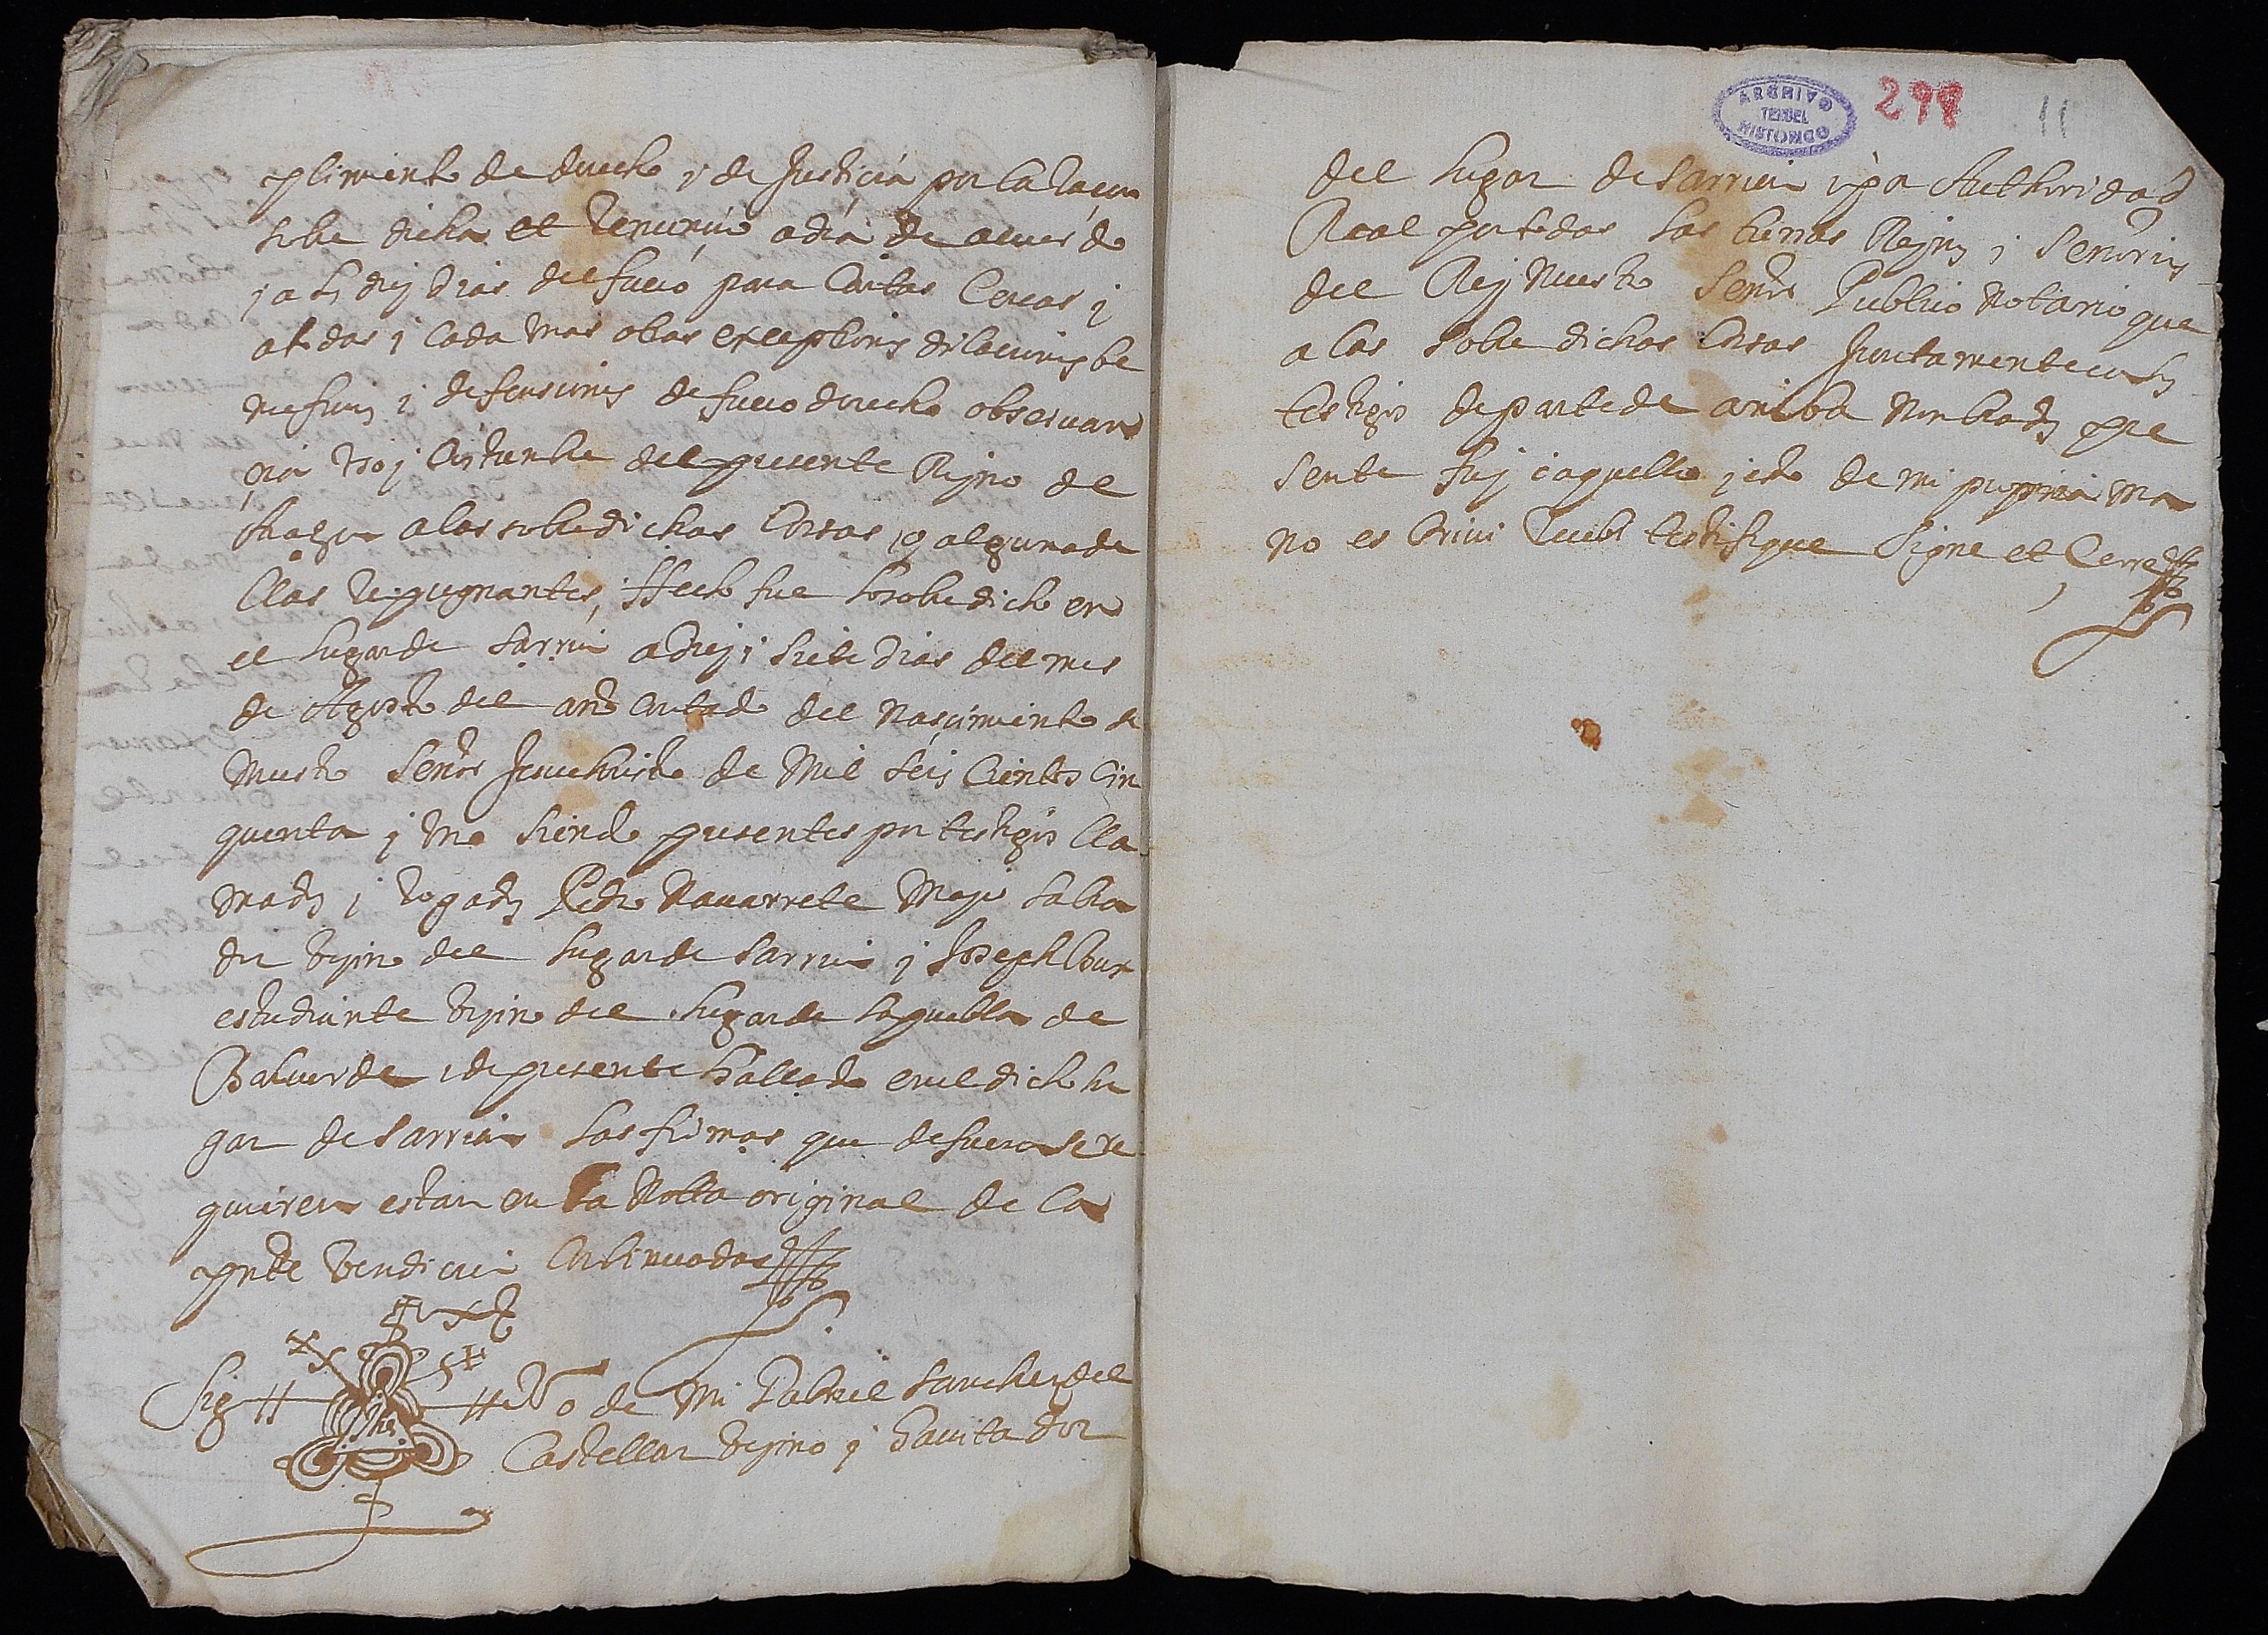 plimiento de drecho y de Justicia por la raçon
sobre dicha et Renunçio a dia de acuerdo
j a los diez dias del fuero para Cartas Cercar j
a todas j cada unas otras exceptiones dilaciones be
neficios j defensiones de fuero drecho obseruan
çia uso j Costumbre del presente Reyno de
Aragon a las sobredichas Cosas o alguna de
llas repugnantes, ffecho fue lo sobredicho en
el Lugar de Sarrion a diez j siete dias del mes
de Agosto del año contado del Nasçimiento de
Nuestro Señor Jesuchristo de Mil Seis Cientos Cin
quenta j uno siendo presentes por testigos lla
mados j rogados Pedro Nauarrete Mayor labra
dor vezino del Lugar de Sarrion j Joseph
estudiante vezino del Lugar de la puebla de
Balverde j de presente hallado en el dicho lu
gar de Sarrion Las firmas que de fuero se re
quieren estan en la Notta original de la
pnte vendicion Continuadas
Sig no de Mi Gabriel Sanchez del
Jhs
Castellar vezino j hauitador
ARCHIVO
TERUEL
HISTORICO
298
11
del Lugar de Sarrion j por Authoridad
Real por todas las tierras Reynos j Señorios
del Rey Nuestro Señor Publico Notario que
a las sobre dichas Cosas Juntamente con los
testigos de parte de arriba Nombrados pre
sente fuy j aquello j esto de mi propria ma
no escriui Recebi testifique Signe et Cerre